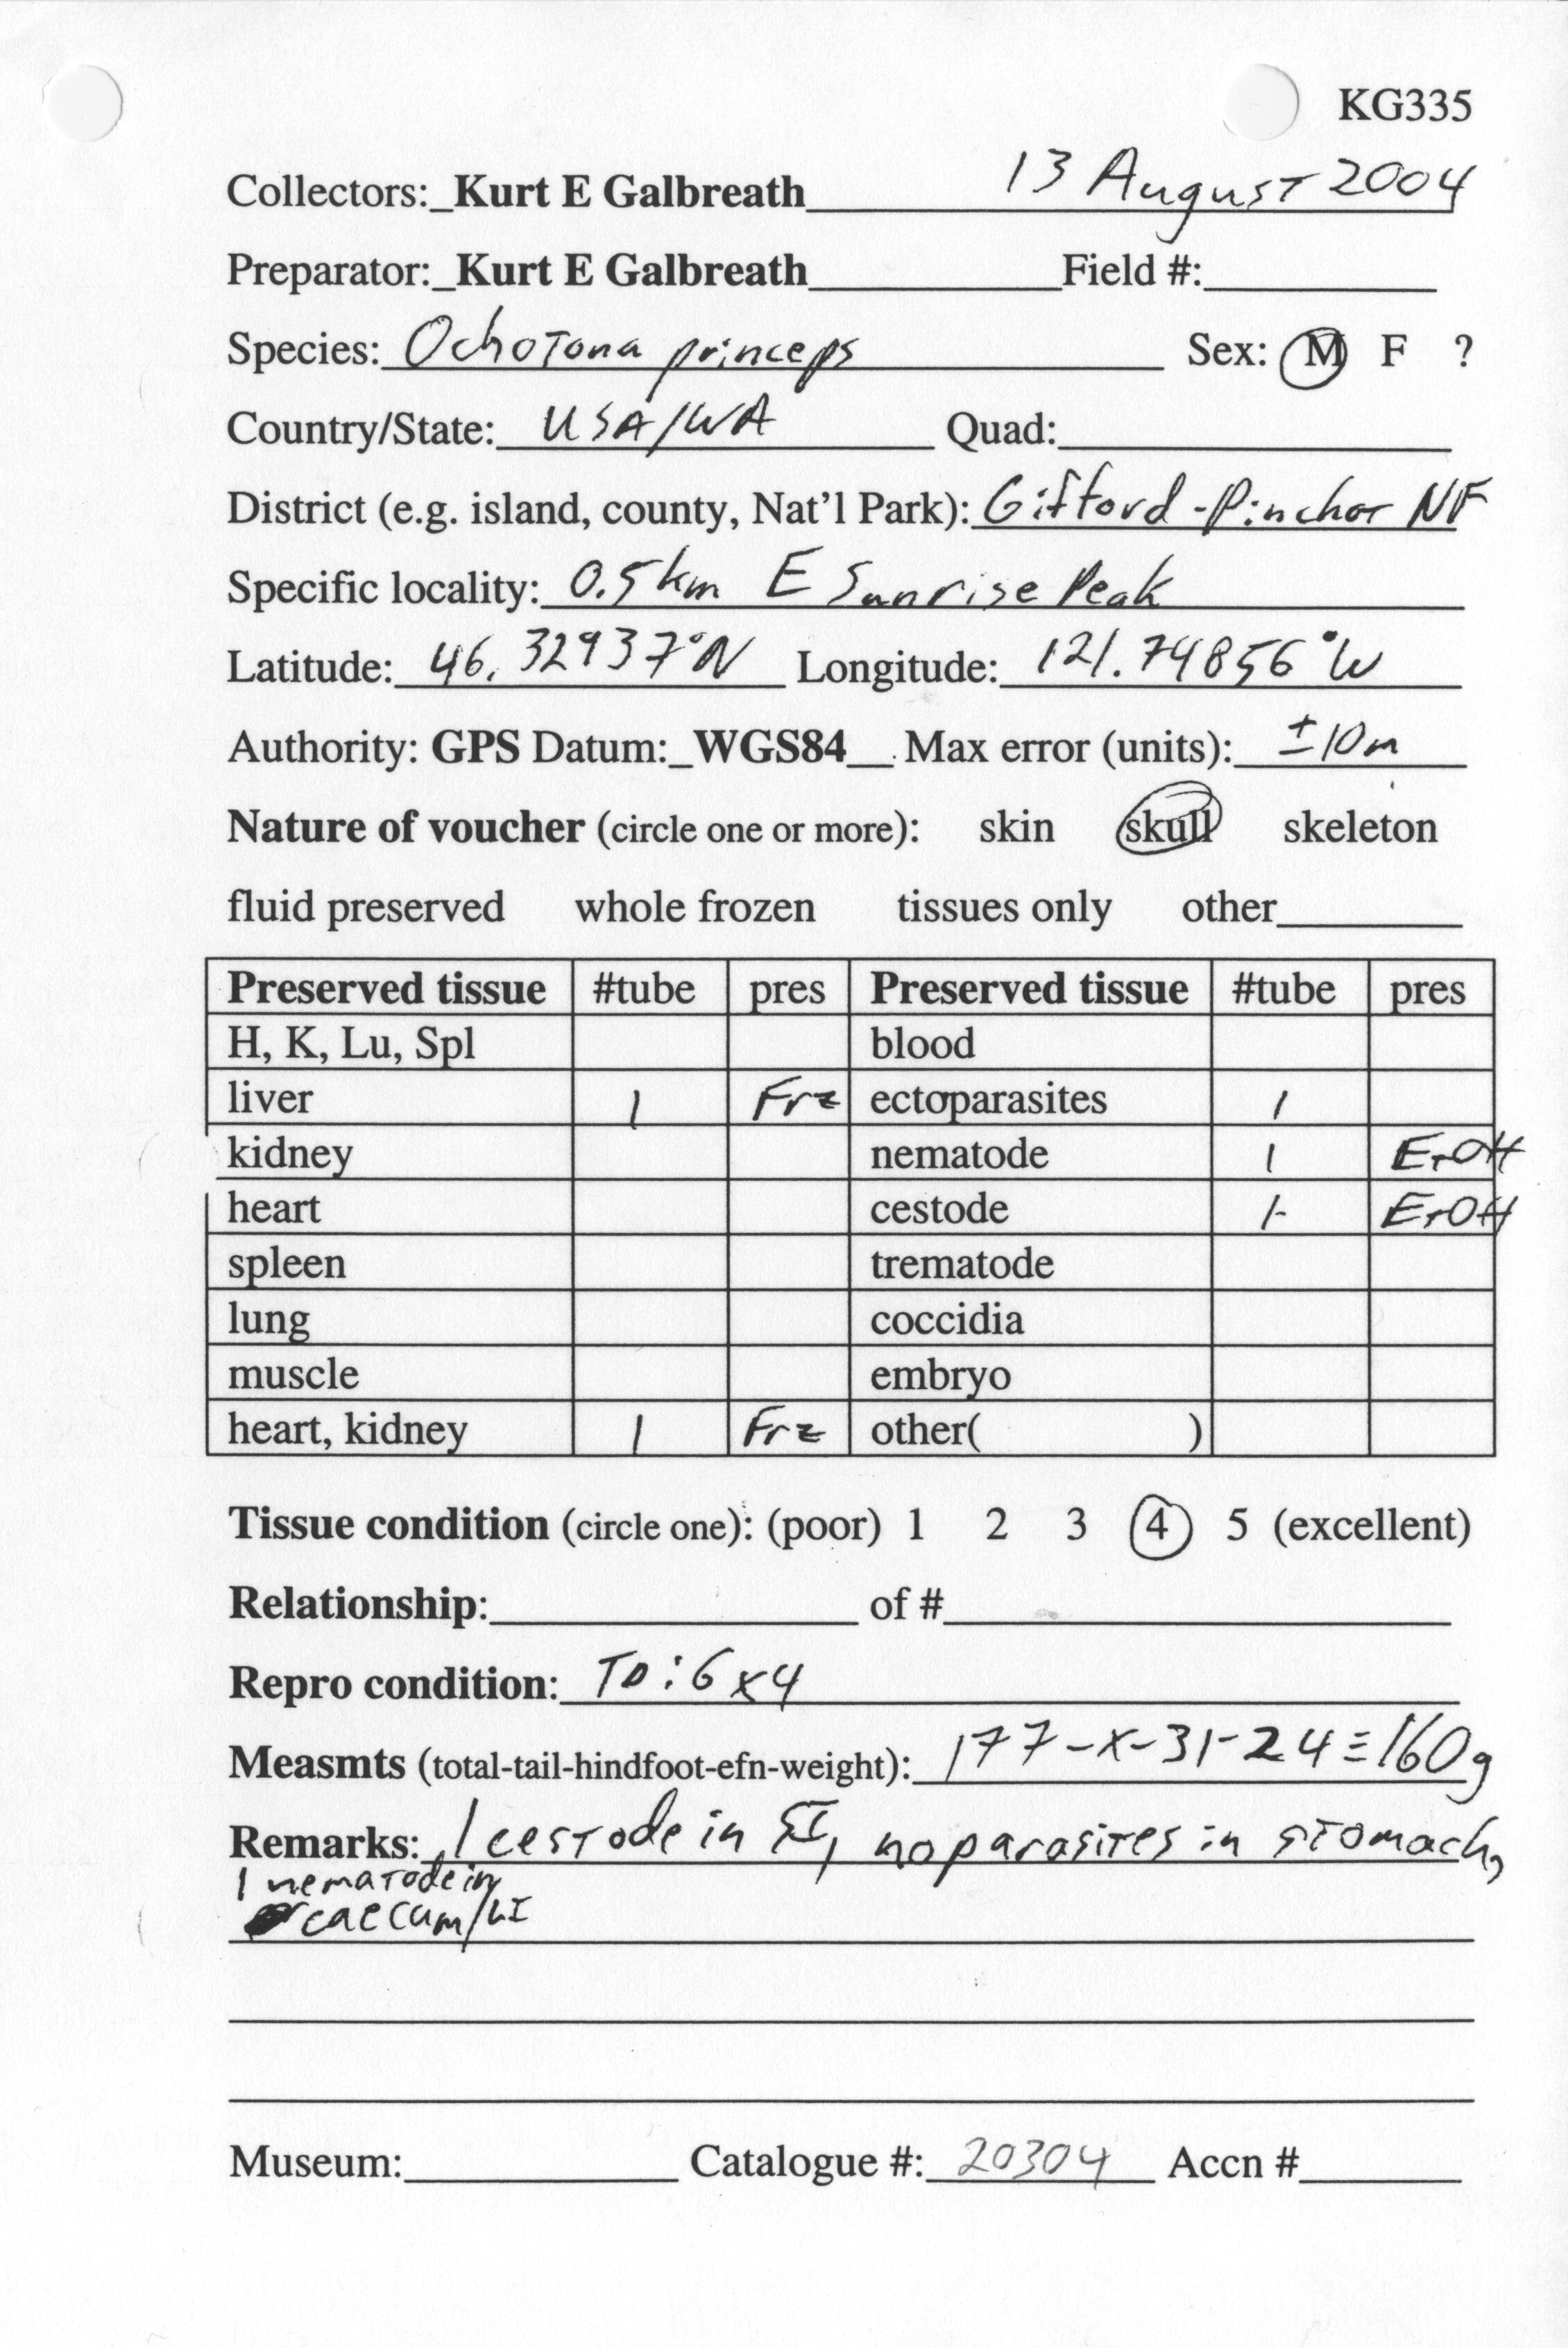 KG335
Collectors:_Kurt E Galbreath 13 August 2004
Preparator:_Kurt E Galbreath Field #:
Species: Ochotona princeps Sex: M F ?
Country/State: USA/WA Quad:
District (e.g. island, county, Nat'l Park): Gifford-Pinchot NF
Specific locality: 0.5km E Sunrise Peak
Latitude: 46.32937°N Longitude: 121.74856°W
Authority: GPS Datum:_WGS84__ Max error (units): ±10m
Nature of voucher (circle one or more): skin skull skeleton
fluid preserved whole frozen tissues only other
Preserved tissue #tube pres Preserved tissue #tube pres
H, K, Lu, Spl blood
liver 1 Frz ectoparasites 1
kidney nematode 1 EtOH
heart cestode 1 EtOH
spleen trematode
lung coccidia
muscle embryo
heart, kidney 1 Frz other( )
Tissue condition (circle one): (poor) 1 2 3 4 5 (excellent)
Relationship: of #
Repro condition: TD: 6x4
Measmts (total-tail-hindfoot-efn-weight): 177-x-31-24≡160g
Remarks: 1 cestode in SI, no parasites in stomach,
1 nematode in
caecum/LI
Museum: Catalogue #: 20304 Accn #